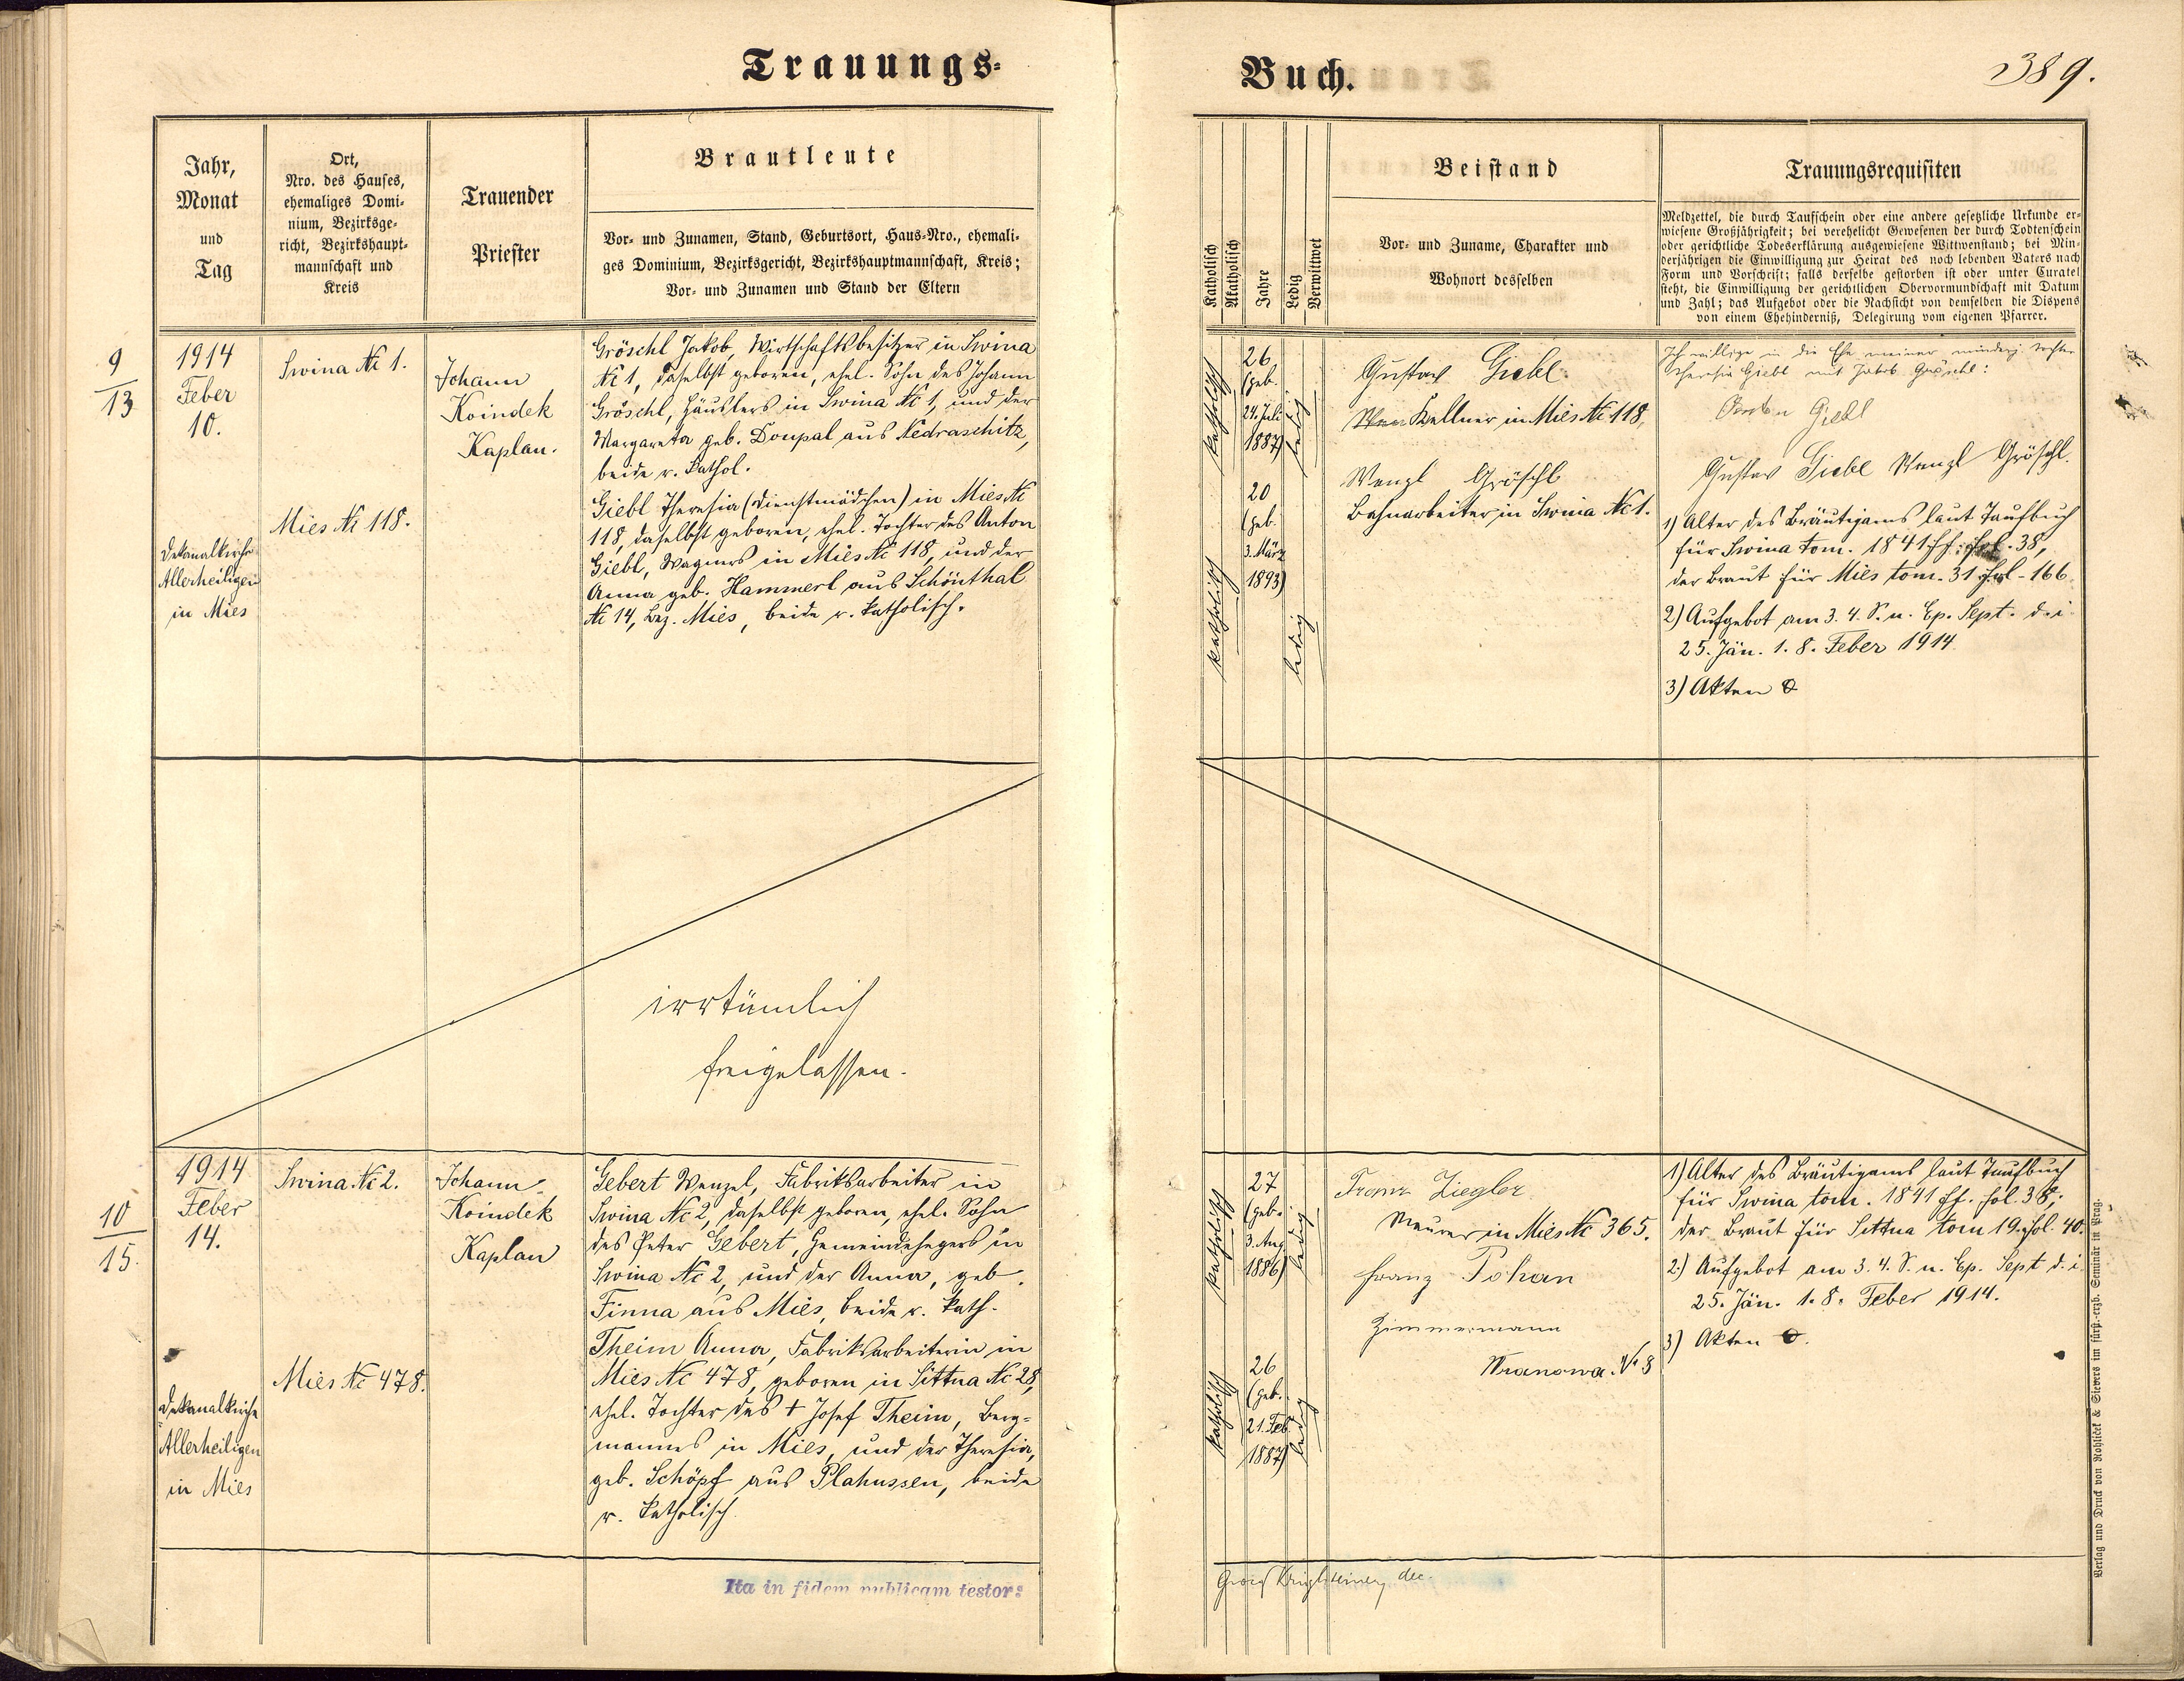 Trauungs-
Buch.
389.
Jahr,
Monat
und
Tag
Ort,
Nro. des Hauses,
ehemaliges Domi-
nium, Bezirksge-
richt, Bezirkshaupt-
mannschaft und
Kreis
Trauender
Priester
Brautleute
Vor- und Zunamen, Stand, Geburtsort, Haus-Nro., ehemali-
ges Dominium, Bezirksgericht, Bezirkshauptmannschaft, Kreis;
Vor- und Zunamen und Stand der Eltern
Katholisch
Akatholisch
Jahre
Ledig
Verwittwet
Beistand
Vor- und Zuname, Charakter und
Wohnort desselben
Trauungsrequisiten
Meldzettel, die durch Taufschein oder eine andere gesetzliche Urkunde er-
wiesene Großjährigkeit; bei verehelicht Gewesenen der durch Todtenschein
oder gerichtliche Todeserklärung ausgewiesene Wittwenstand; bei Min-
derjährigen die Einwilligung zur Heirat des noch lebenden Vaters nach
Form und Vorschrift; falls derselbe gestorben ist oder unter Curatel
steht, die Einwilligung der gerichtlichen Obervormundschaft mit Datum
und Zahl; das Aufgebot oder die Nachsicht von demselben die Dispens
von einem Ehehinderniß, Delegirung vom eigenen Pfarrer.
9
13
1914
Feber
10.
Dekanalkirche
Allerheiligen
in Mies
Swina № 1.
Mies № 118.
Johann
Koindek
Kaplan.
Gröschl Jakob, Wirtschaftsbesitzer in Swina
№ 1, daselbst geboren, ehel. Sohn des Johann
Gröschl, Häuslers in Swina № 1, und der
Margareta geb. Doupal aus Nedraschitz,
beide r. kathol.
Giebl Theresia (Dienstmädchen) in Mies №
118, daselbst geboren, ehel. Tochter des Anton
Giebl, Wagners in Mies № 118, und der
Anna geb. Hammerl aus Schönthal
№ 14, Bez. Mies, beide r. katholisch.
katholisch
26
(geb.
24. Juli
1887)
ledig
katholisch
20
(geb.
3. März
1893)
ledig
Gustav Giebl
Kellner in Mies № 118,
Wenzl Gröschl
Bahnarbeiter in Swina № 1.
Ich willige in die Ehe meiner minderj. Tochter
Theresia Giebl mit Jakob Gröschl:
Anton Giebl
Gustav Giebl Wenzl Gröschl.
1) Alter des Bräutigams laut Taufbuch
für Swina tom. 1841 ff. fol. 38,
der Braut für Mies tom. 31 fol - 166.
2) Aufgebot am 3. 4. S. n. Ep. Sept. d. i.
25. Jän. 1. 8. Feber 1914.
3) Akten
irrtümlich
freigelassen.
10
15.
1914
Feber
14.
Dekanalkirche
Allerheiligen
in Mies
Swina № 2.
Mies № 478.
Johann
Koindek
Kaplan
Gebert Wenzel, Fabriksarbeiter in
Swina № 2, daselbst geboren, ehel. Sohn
des Peter Gebert, Gemeindehegers in
Swina № 2, und der Anna, geb.
Finna aus Mies, beide r. kath.
Theim Anna, Fabriksarbeiterin in
Mies № 478, geboren in Sittna № 28,
ehel. Tochter des † Josef Theim, Berg-
mannes in Mies, und der Theresia,
geb. Schöpf aus Plahussen, beide
r. katholisch
katholisch
27
(geb.
3. Aug.
1886)
ledig
katholisch
26
(geb.
21. Feb
1887)
ledig
Franz Ziegler
Maurer in Mies № 365.
Franz Pohan
Zimmermann
Wranowa. № 8
1) Alter des Bräutigams laut Taufbuch
für Swina tom. 1841 ff. fol. 38,
der Braut für Sittna tom 19. fol. 40.
2.) Aufgebot am 3. 4. S. n. Ep. Sept d. i.
25. Jän. 1. 8. Feber 1914.
3) Akten
Ita in fidem publicam testor:
dec.
Verlag und Druck von Rohliček & Sievers im fürst.-erzb. Seminär in Prag.